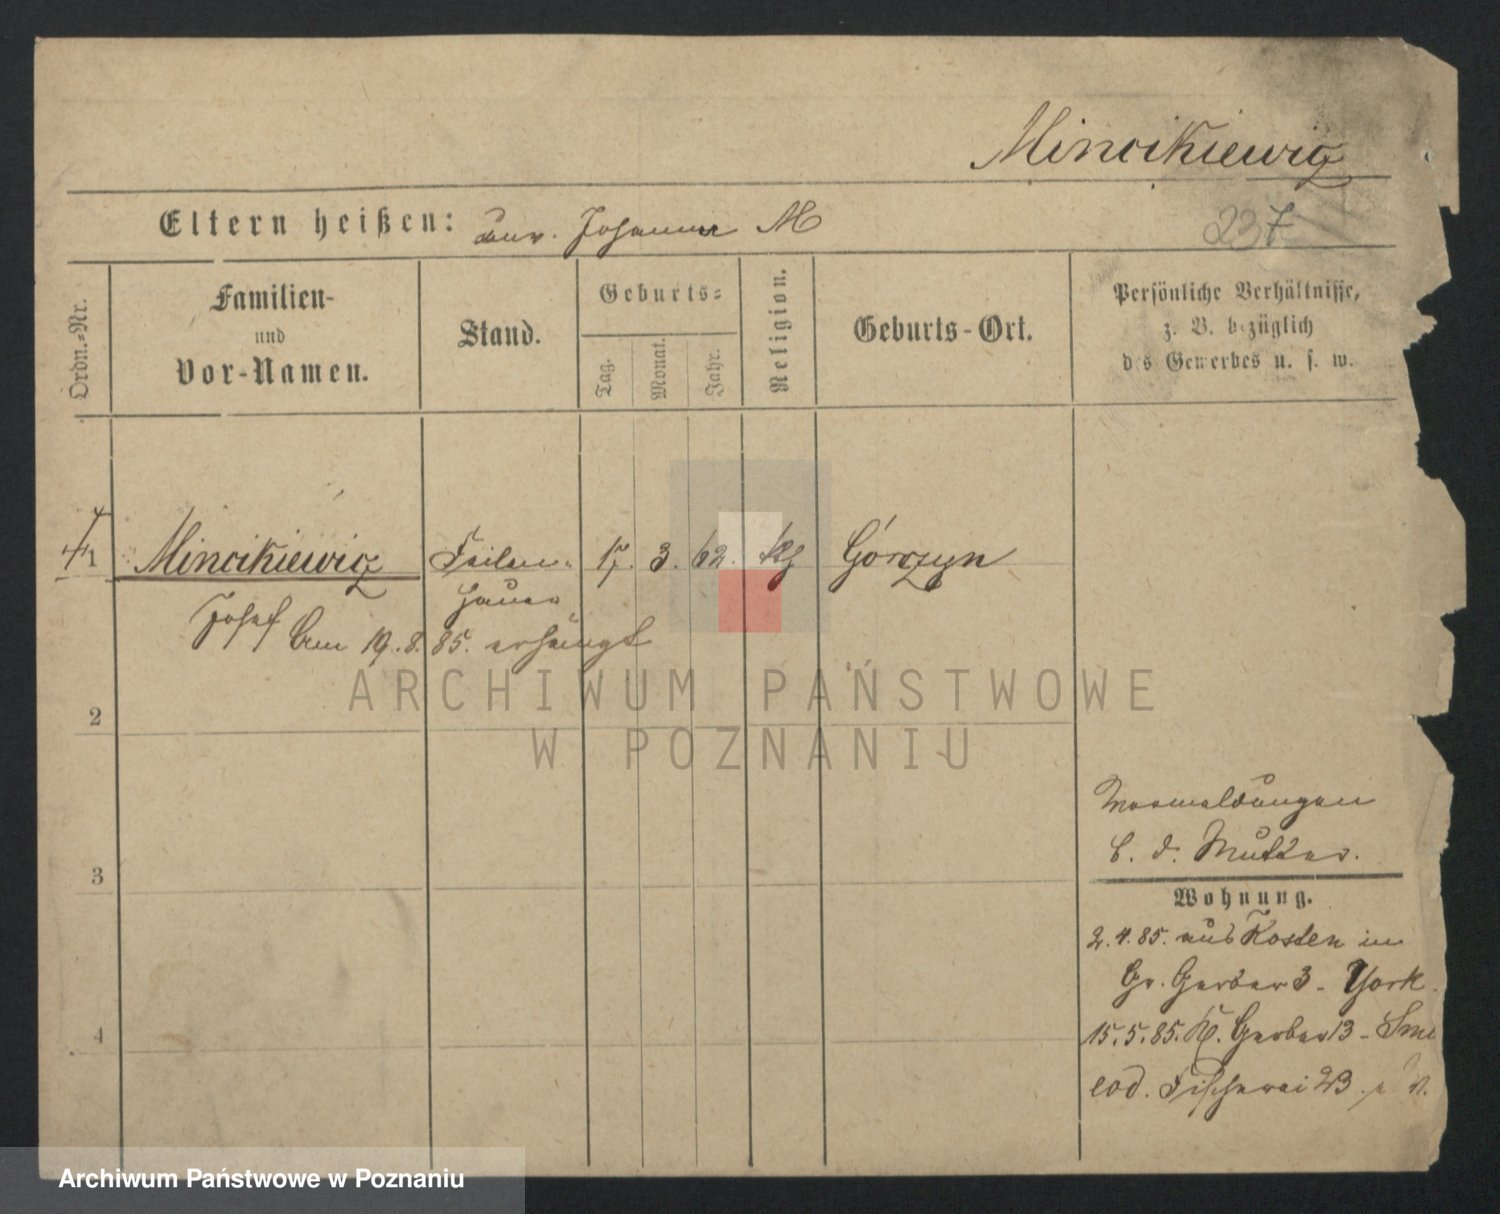 Mincikiewicz
237
Eltern heißen: unv. Johanna M
Ordn.-Nr.
Familien-
und
Vor-Namen.
Stand.
Geburts-
Tag.
Monat.
Jahr.
Religion.
Geburts-Ort.
Persönliche Verhältnisse,
z. B. bezüglich
des Gewerbes u. s. w.
1 Mincikiewicz Feilen- 17. 3. 62. kg Górczyn
Josef hauer
Am 19.8.85. erhängt
ARCHIWUM PAŃSTWOWE
W POZNANIU
2
3
4
Vormeldungen
b. d. Mutter.
Wohnung.
2.4.85. aus Kosten in
Gr. Gerber 3 - York
15.5.85. Kl. Gerber 13 -
eod. Fischerei 23
Archiwum Państwowe w Poznaniu